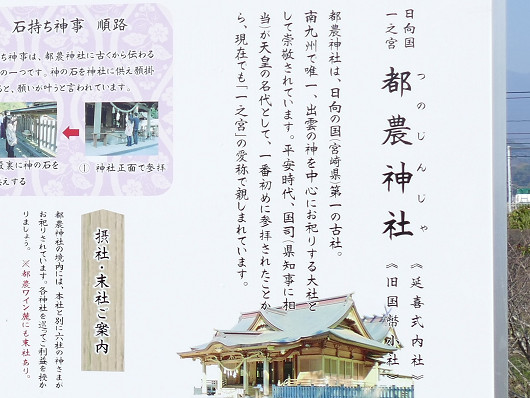 日向国
一之宮
都農神社
つのじんじゃ
《延喜式内社》
《旧国幣小社》
都農神社は、日向の国(宮崎県)第一の古社。
南九州で唯一、出雲の神を中心にお祀りする大社と
して崇敬されています。平安時代、国司(県知事に相
当)が天皇の名代として、一番初めに参拝されたことか
ら、現在でも「一之宮」の愛称で親しまれています。
石持ち神事 順路
ち神事は、都農神社に古くから伝わる
の一つです。神の石を神社に供え願掛
ると、願いが叶うと言われています。
神社正面で参拝
裏に神の石を
えする
摂社・末社ご案内
都農神社の境内には、本社と別に六社の神さまが
お祀りされています。各神社を巡ってご利益を授か
りましょう。 ※都農ワイン蔵にも末社あり。